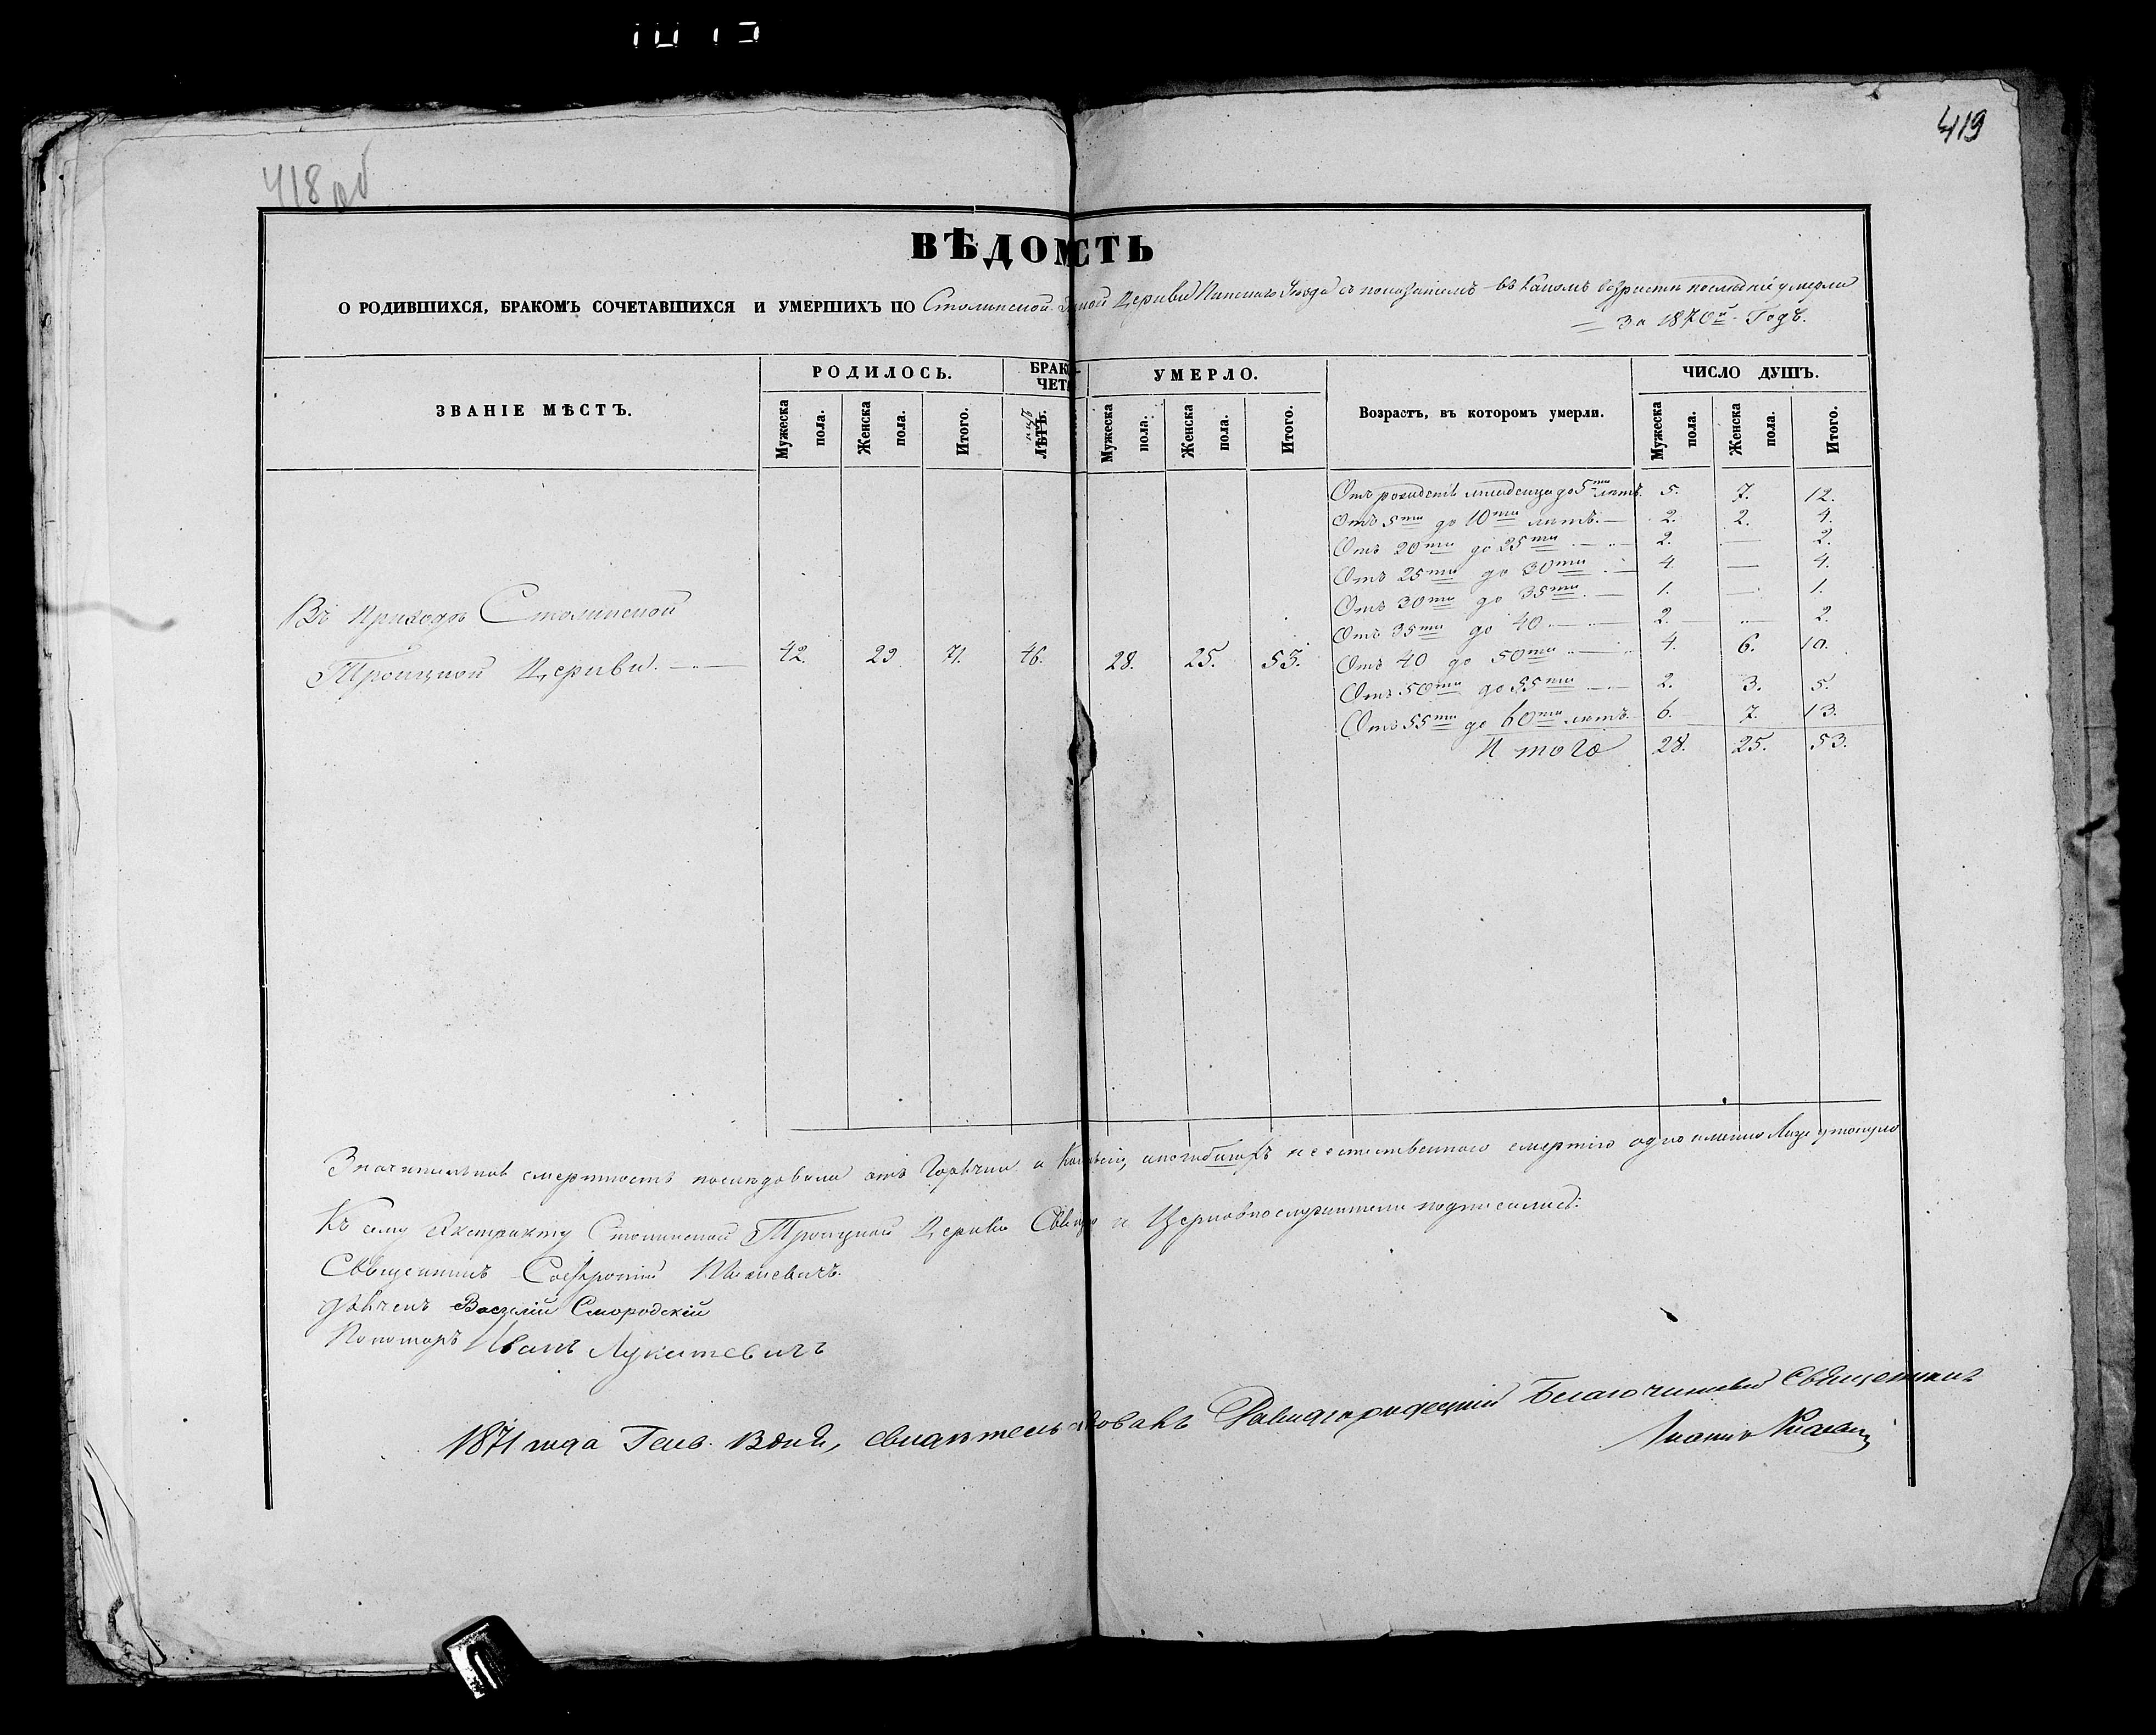 419
418 об
ВѢДОМСТЬ
О РОДИВШИХСЯ, БРАКОМЪ СОЧЕТАВШИХСЯ И УМЕРШИХЪ ПО Столинской Церкви Пинскаго Уѣзда съ показаніемъ въ какомъ возрастѣ послѣдніе умерли
За 1870й Годъ.
ЗВАНІЕ МѢСТЪ.
РОДИЛОСЬ.
БРАК
ЧЕТ
УМЕРЛО.
Возрастъ, въ которомъ умерли.
ЧИСЛО ДУШЪ.
Мужеска пола.
Женска пола.
Итого.
ЛѢТЪ.
Мужеска пола.
Женска пола.
Итого.
Мужеска пола.
Женска пола.
Итого.
Отъ рожденія младенца до 5ти лѣтъ. 5. 7. 12.
Отъ 5ти до 10ти лѣтъ. — 2. 2. 4.
Отъ 20ти до 25ти — 2. — 2.
Отъ 25ти до 30ти — 4. — 4.
Отъ 30ти до 35ти — 1. — 1.
Отъ 35ти до 40 — 2. — 2.
Отъ 40 до 50ти — 4. 6. 10.
Отъ 50ти до 55ти — 2. 3. 5.
Отъ 55ти до 60ти лѣтъ. 6. 7. 13.
Итого 28. 25. 53.
Въ Приходѣ Столинской
Троицкой Церкви. — 42. 29 71. 46. 28. 25. 53.
смертность послѣдовала отъ Горячки и неестественною смертію одно именно Лице утонуло
Къ сему Экстракту Столинской Троицкой Церкви Священно и Церковнослужители подписались:
Священникъ Софроній
Дьячекъ Василій Смородскій
Пономарь Иванъ Лукашевичъ
1871 года Генв. дня, свидѣтельствовалъ Давидгородецкій Благочинный Священникъ
Іоаннъ